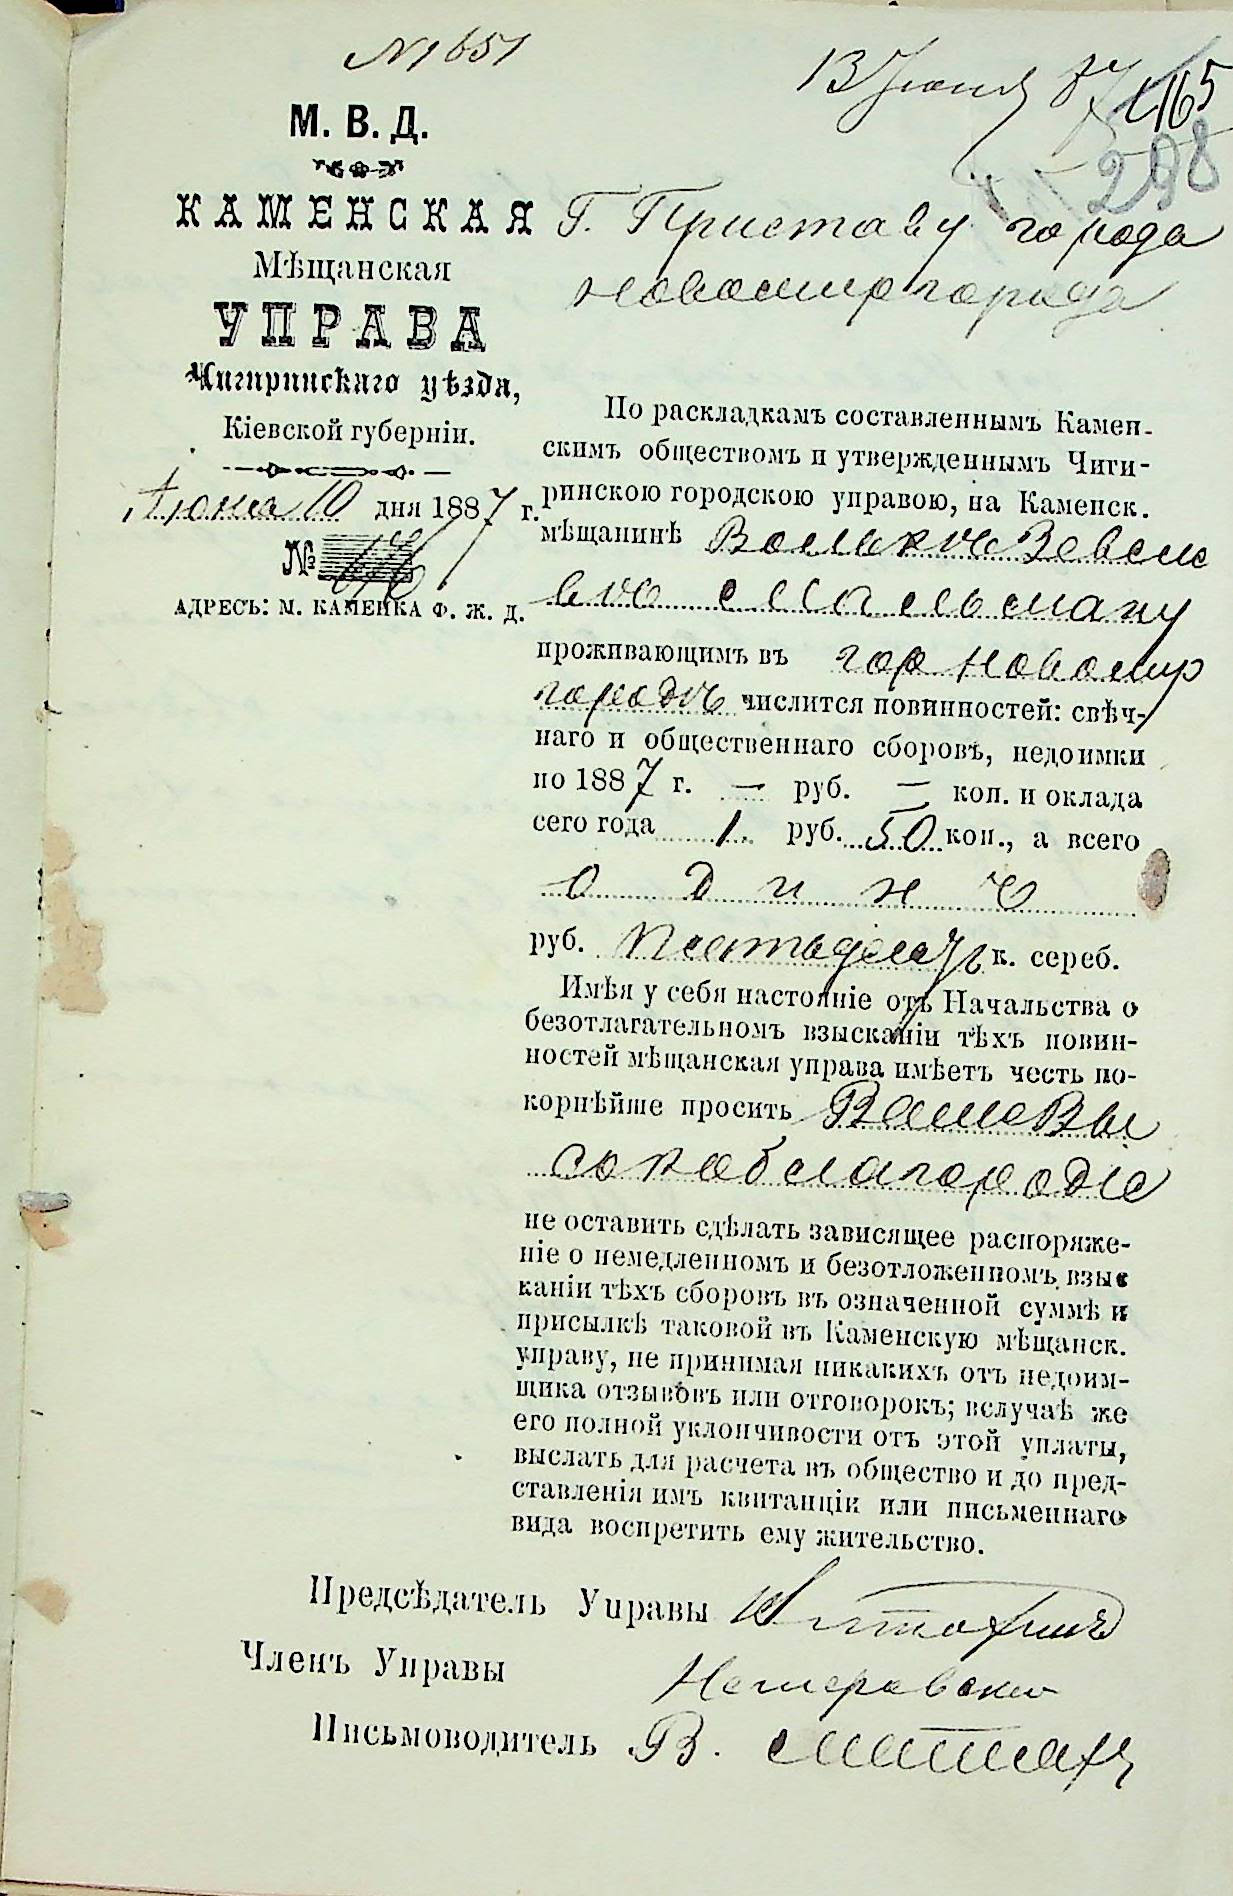 № 1651
13 Июня 87
1165
298
М. В. Д.
КАМЕНСКАЯ
Мѣщанская
УПРАВА
Чигиринскаго уѣзда,
Кіевской губерніи.
Июня 10 дня 1887 г.
№
АДРЕСЪ: М. КАМЕНКА Ф. Ж. Д.
Г. Приставу города
Новомиргорода
По раскладкамъ составленнымъ Камен-
скимъ обществомъ и утвержденнымъ Чиги-
ринскою городскою управою, на Каменск.
мѣщанинѣ Волько Зевеле
проживающимъ въ гор Новомир
городѣ числится повинностей: свѣч-
наго и общественнаго сборовъ, недоимки
по 1887 г. — руб. — коп. и оклада
сего года 1 руб. 50 коп., а всего
одинъ
руб. пятьдесятъ к. сереб.
Имѣя у себя настояніе отъ Начальства о
безотлагательномъ взысканіи тѣхъ повин-
ностей мѣщанская управа имѣетъ честь по-
корнѣйше просить Ваше Вы
сокоблагородіе
не оставить сдѣлать зависящее распоряже-
ніе о немедленномъ и безотложенномъ взыс
каніи тѣхъ сборовъ въ означенной суммѣ и
присылкѣ таковой въ Каменскую мѣщанск.
управу, не принимая никакихъ отъ недоим-
щика отзывовъ или отговорокъ; вслучаѣ же
его полной уклончивости отъ этой уплаты,
выслать для расчета въ общество и до пред-
ставленія имъ квитанціи или письменнаго
вида воспретить ему жительство.
Предсѣдатель Управы
Членъ Управы
Письмоводитель В.